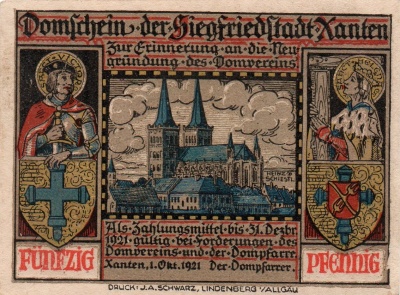 Domschein · der · Siegfriedstadt · Xanten
Zur · Erinnerung · an · die · Neu
gründung · des · Domvereins
HEINZ
SCHIESTL
Als · Zahlungsmittel · bis · 31. Dezbr
1921 · gültig · bei · Forderungen · des
Domvereins · und · der · Dompfarre ·
Xanten, 1. Okt. 1921 Der Dompfarrer.
FÜNFZIG
PFENNIG
DRUCK: J.A. SCHWARZ, LINDENBERG i/ALLGÄU